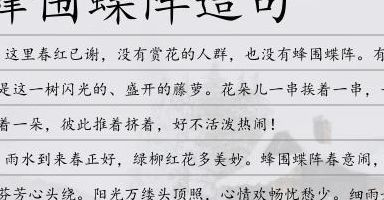 蜂围蝶阵造句
这里春红已谢，没有赏花的人群，也没有蜂围蝶阵。有
是这一树闪光的、盛开的藤萝。花朵儿一串挨着一串，一
着一朵，彼此推着挤着，好不活泼热闹！
雨水到来春正好，绿柳红花多美妙。蜂围蝶阵春意闹，
芬芳心头绕。阳光万缕头顶照，心情欢畅忧愁少。细雨